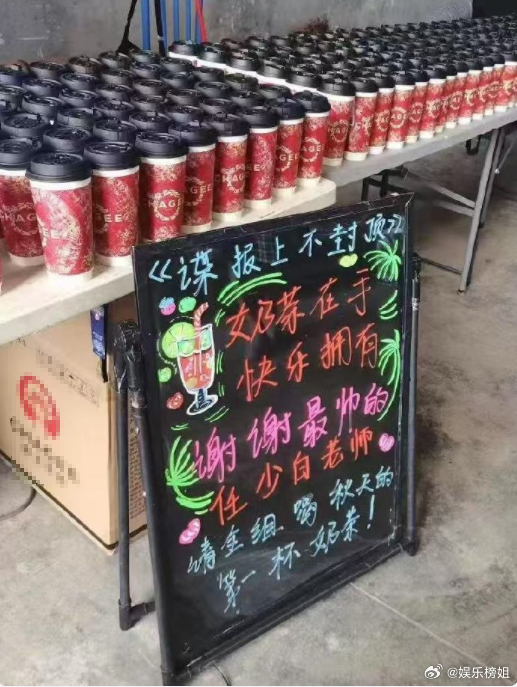 CHAGEE
《谍报上不封顶》
奶茶在手
快乐拥有
谢谢最帅的
任少白老师
请全组喝秋天的
第一杯奶茶！
@娱乐榜姐